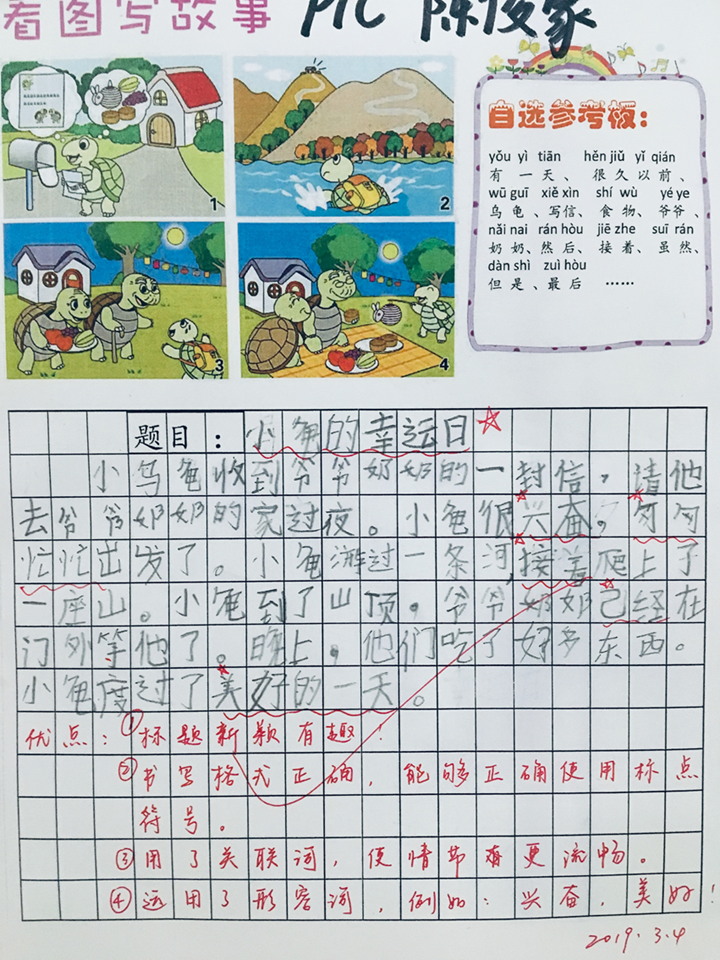 看图写故事 P1C 陈俊豪
1
2
3
4
自选参考板：
yǒu yì tiān hěn jiǔ yǐ qián
有一天、很久以前、
wū guī xiě xìn shí wù yé ye
乌龟、写信、食物、爷爷、
nǎi nai rán hòu jiē zhe suī rán
奶奶、然后、接着、虽然、
dàn shì zuì hòu
但是、最后 ……
题目：小龟的幸运日
小乌龟收到爷爷奶奶的一封信，请他
去爷爷奶奶的家过夜。小龟很兴奋，匆匆
忙忙出发了。小龟游过一条河，接着爬上了
一座山。小龟到了山顶。爷爷奶奶已经在
门外等他了。晚上，他们吃了好多东西。
小龟度过了美好的一天。
优点：①标题新颖有趣！
②书写格式正确，能够正确使用标点
符号。
③用了关联词，使情节更流畅。
④运用了形容词，例如：兴奋，美好！
2019.3.4